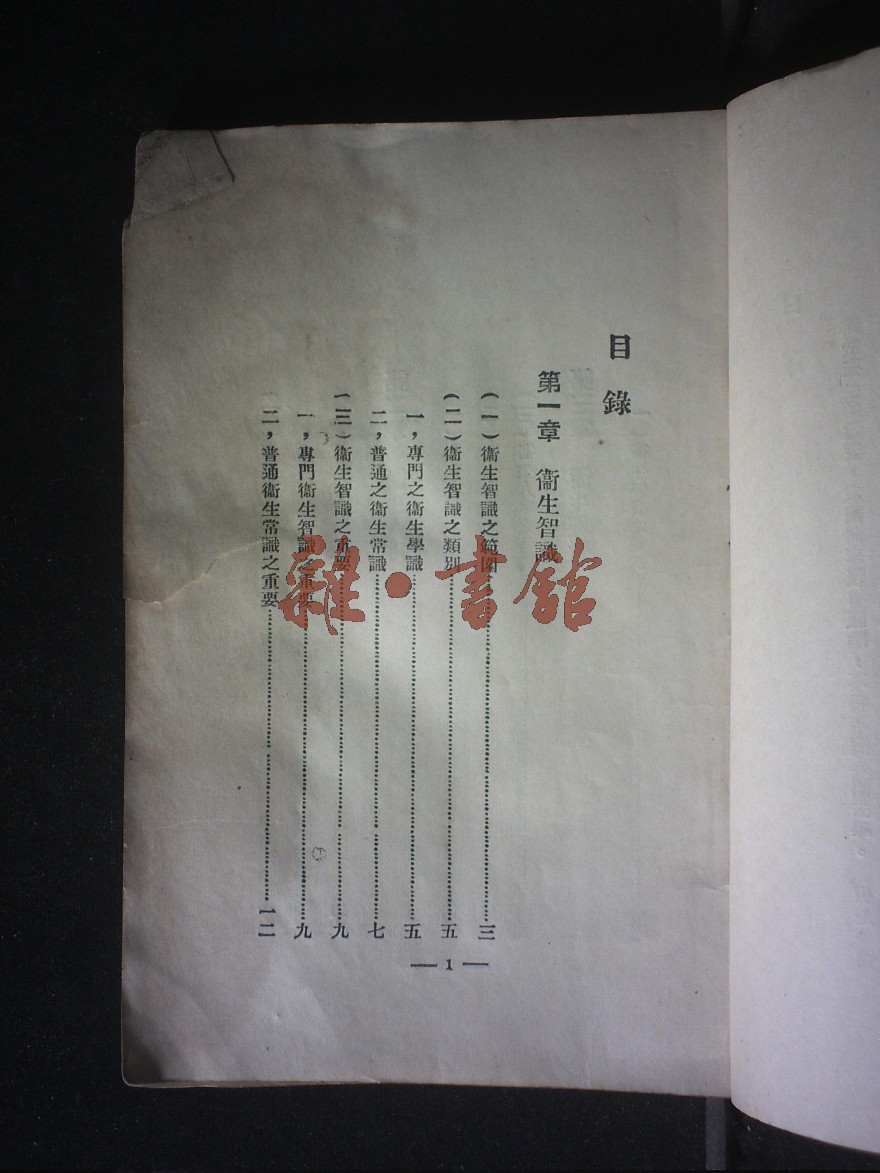 目錄
第一章 衞生智識
(一)衞生智識之範圍……三
(二)衞生智識之類別……五
一,專門之衞生學識……五
二,普通之衞生常識……七
(三)衞生智識之重要……九
一,專門衞生智識之重要……九
二,普通衞生常識之重要……一二
— 1 —
雜·書館